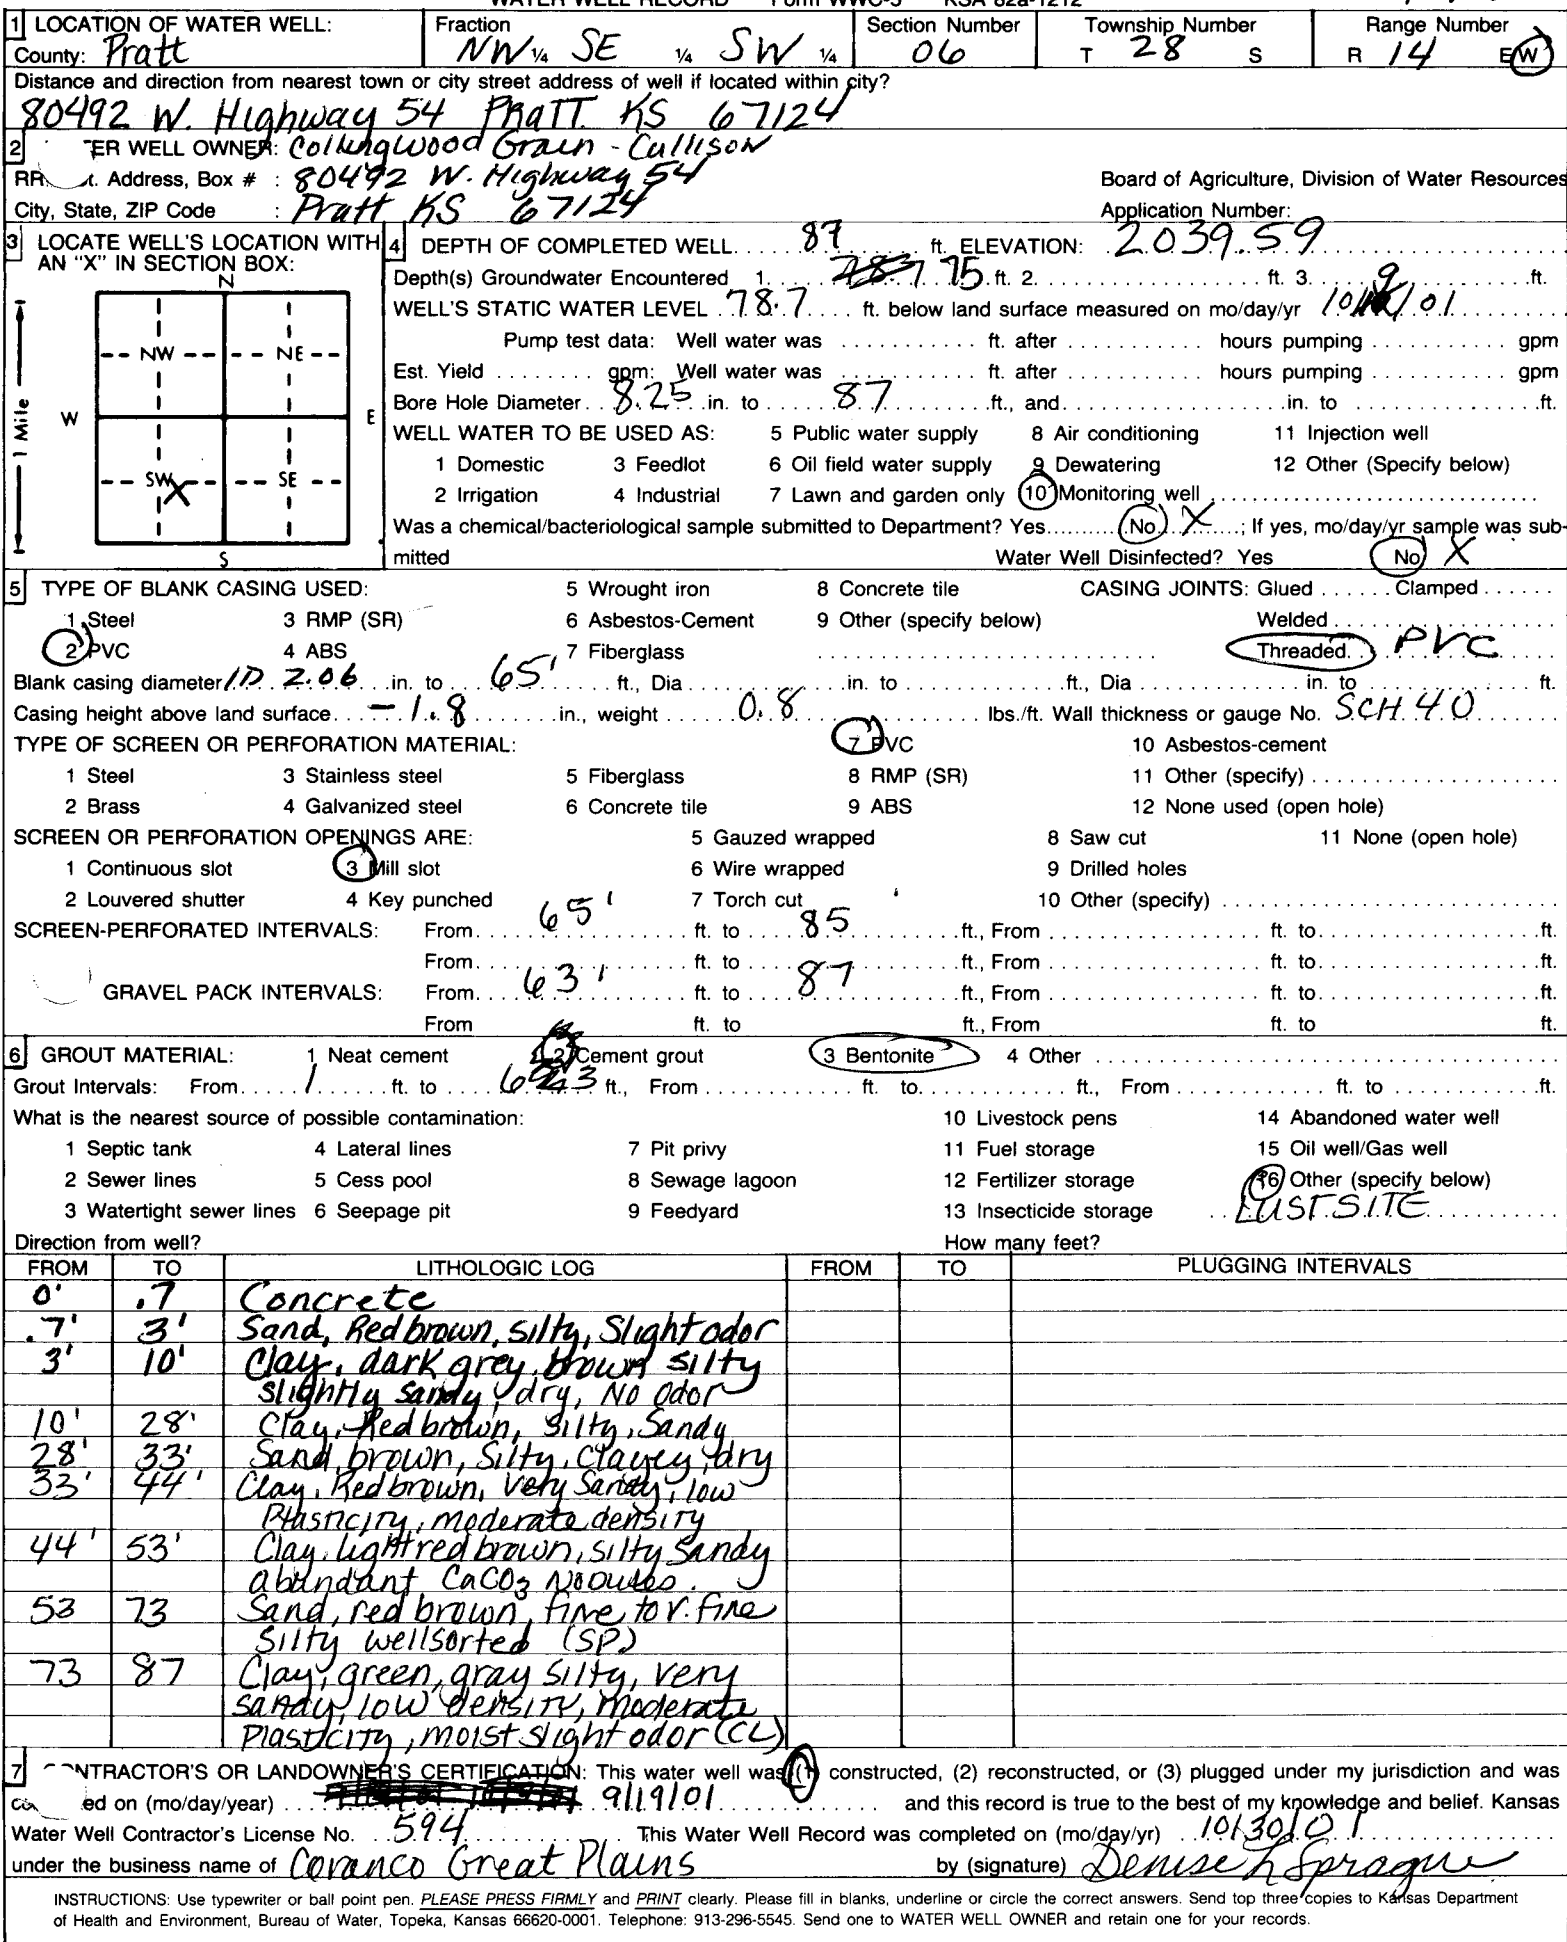 WATER WELL RECORD Form WWC-5 KSA 82a-1212
1 LOCATION OF WATER WELL: Fraction Section Number Township Number Range Number
County: Pratt NW ¼ SE ¼ SW ¼ 06 T 28 S R 14 E(W)
Distance and direction from nearest town or city street address of well if located within city?
80492 W. Highway 54 PRATT KS 67124
2 ER WELL OWNER: Collingwood Grain - Cullison
RR t. Address, Box # : 80492 W. Highway 54 Board of Agriculture, Division of Water Resources
City, State, ZIP Code : Pratt KS 67124 Application Number:
3 LOCATE WELL'S LOCATION WITH AN "X" IN SECTION BOX:
N
NW NE
W E
SW X SE
S
1 Mile
4 DEPTH OF COMPLETED WELL 87 ft. ELEVATION: 2039.59
Depth(s) Groundwater Encountered 1. 75 ft. 2. ft. 3. ft.
WELL'S STATIC WATER LEVEL 78.7 ft. below land surface measured on mo/day/yr 10/9/01
Pump test data: Well water was ft. after hours pumping gpm
Est. Yield gpm: Well water was ft. after hours pumping gpm
Bore Hole Diameter 8.25 in. to 87 ft., and in. to ft.
WELL WATER TO BE USED AS: 5 Public water supply 8 Air conditioning 11 Injection well
1 Domestic 3 Feedlot 6 Oil field water supply 9 Dewatering 12 Other (Specify below)
2 Irrigation 4 Industrial 7 Lawn and garden only 10 Monitoring well
Was a chemical/bacteriological sample submitted to Department? Yes No X ; If yes, mo/day/yr sample was sub-
mitted Water Well Disinfected? Yes No X
5 TYPE OF BLANK CASING USED: 5 Wrought iron 8 Concrete tile CASING JOINTS: Glued Clamped
1 Steel 3 RMP (SR) 6 Asbestos-Cement 9 Other (specify below) Welded
2 PVC 4 ABS 7 Fiberglass Threaded PVC
Blank casing diameter ID 2.06 in. to 65' ft., Dia in. to ft., Dia in. to ft.
Casing height above land surface -1.8 in., weight 0.8 lbs./ft. Wall thickness or gauge No. SCH 40
TYPE OF SCREEN OR PERFORATION MATERIAL: 7 PVC 10 Asbestos-cement
1 Steel 3 Stainless steel 5 Fiberglass 8 RMP (SR) 11 Other (specify)
2 Brass 4 Galvanized steel 6 Concrete tile 9 ABS 12 None used (open hole)
SCREEN OR PERFORATION OPENINGS ARE: 5 Gauzed wrapped 8 Saw cut 11 None (open hole)
1 Continuous slot 3 Mill slot 6 Wire wrapped 9 Drilled holes
2 Louvered shutter 4 Key punched 7 Torch cut 10 Other (specify)
SCREEN-PERFORATED INTERVALS: From 65' ft. to 85 ft., From ft. to ft.
From ft. to ft., From ft. to ft.
GRAVEL PACK INTERVALS: From 63' ft. to 87 ft., From ft. to ft.
From ft. to ft., From ft. to ft.
6 GROUT MATERIAL: 1 Neat cement 2 Cement grout 3 Bentonite 4 Other
Grout Intervals: From 1 ft. to 63 ft., From ft. to ft., From ft. to ft.
What is the nearest source of possible contamination: 10 Livestock pens 14 Abandoned water well
1 Septic tank 4 Lateral lines 7 Pit privy 11 Fuel storage 15 Oil well/Gas well
2 Sewer lines 5 Cess pool 8 Sewage lagoon 12 Fertilizer storage 16 Other (specify below)
3 Watertight sewer lines 6 Seepage pit 9 Feedyard 13 Insecticide storage LUST SITE
Direction from well? How many feet?
FROM TO LITHOLOGIC LOG FROM TO PLUGGING INTERVALS
0' .7 Concrete
.7' 3' Sand, Red brown, silty, Slight odor
3' 10' Clay, dark grey, brown silty
slightly sandy, dry, No Odor
10' 28' Clay, Red brown, silty, Sandy
28' 33' Sand, brown, Silty, Clayey, dry
33' 44' Clay, Red brown, Very Sandy, low
Plasticity, moderate density
44' 53' Clay, light red brown, silty Sandy
abundant CaCO3 Nodules.
53 73 Sand, red brown, fine to v. fine
Silty well sorted (SP)
73 87 Clay, green, gray silty, very
sandy, low density, moderate
Plasticity, moist slight odor (CL)
7 ONTRACTOR'S OR LANDOWNER'S CERTIFICATION: This water well was (1) constructed, (2) reconstructed, or (3) plugged under my jurisdiction and was
co ed on (mo/day/year) 9/19/01 and this record is true to the best of my knowledge and belief. Kansas
Water Well Contractor's License No. 594 This Water Well Record was completed on (mo/day/yr) 10/30/01
under the business name of Coranco Great Plains by (signature) Denise L Sprague
INSTRUCTIONS: Use typewriter or ball point pen. PLEASE PRESS FIRMLY and PRINT clearly. Please fill in blanks, underline or circle the correct answers. Send top three copies to Kansas Department
of Health and Environment, Bureau of Water, Topeka, Kansas 66620-0001. Telephone: 913-296-5545. Send one to WATER WELL OWNER and retain one for your records.